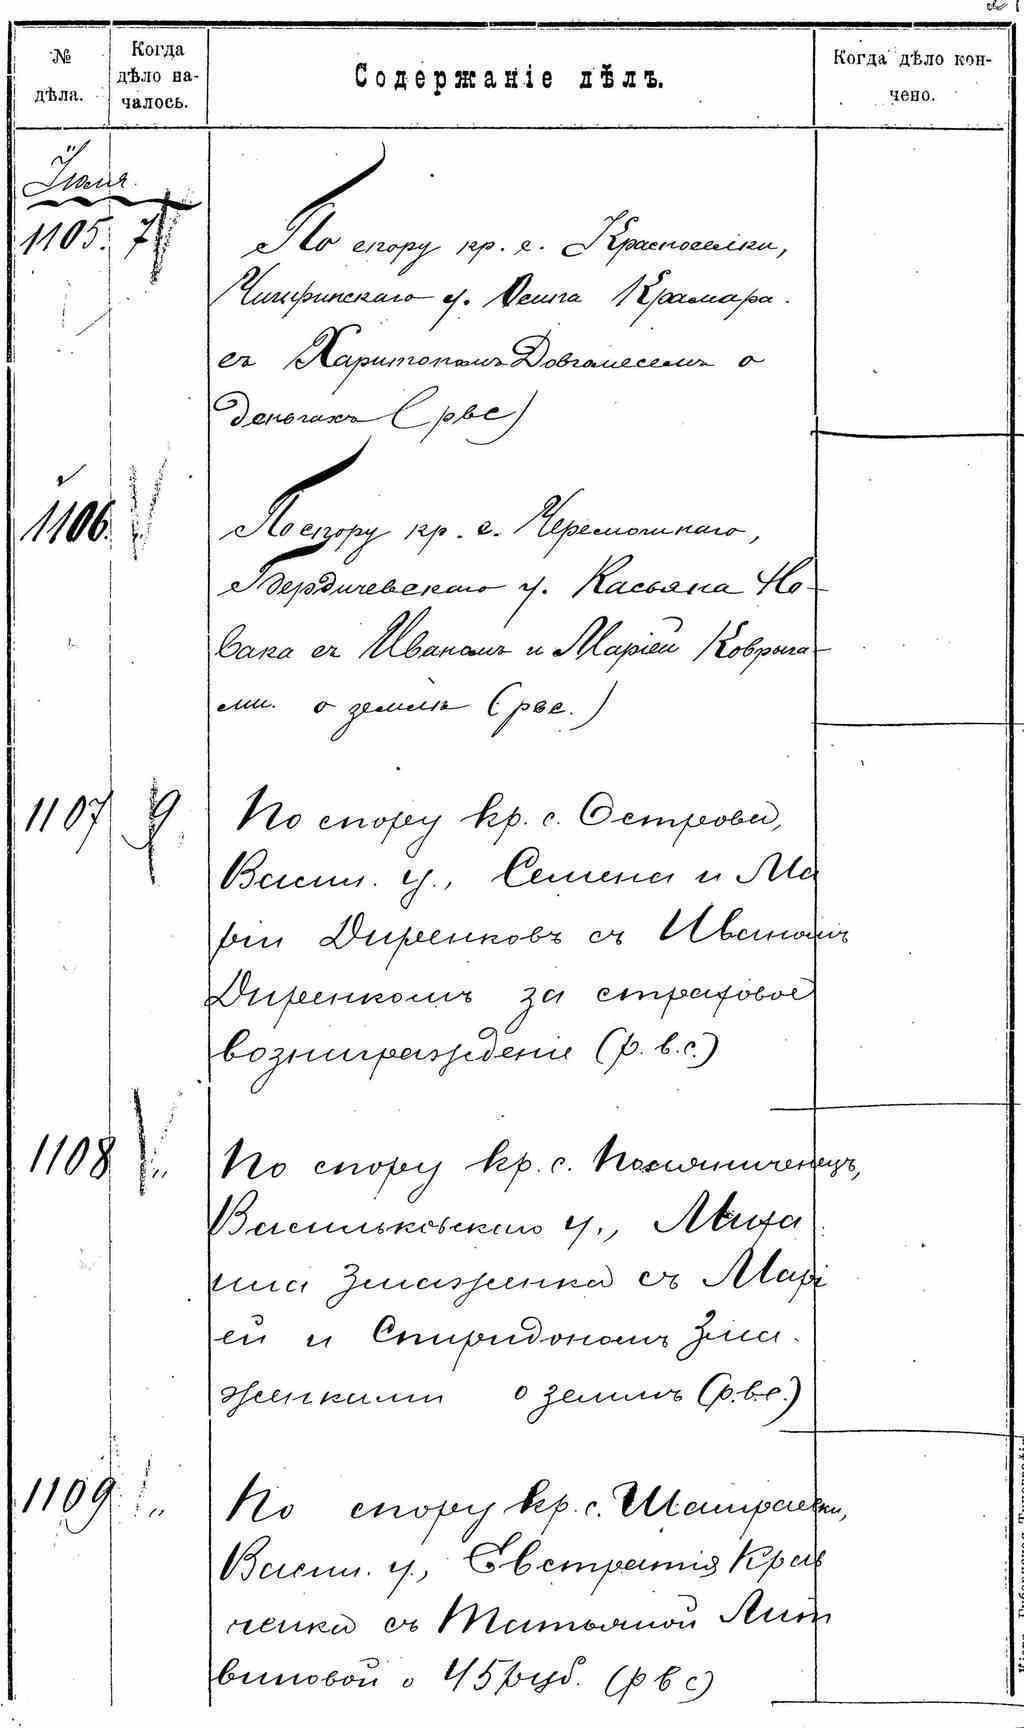 № дѣла.
Когда дѣло на-
чалось.
Содержаніе дѣлъ.
Когда дѣло кон-
чено.
Іюля
1105. 7
По спору кр. с. Красноселки,
Чигиринскаго у. Осипа Крамара
съ Харитономъ Довгалесемъ о
деньгахъ (рвс)
1106.
По спору кр. с. Черемошнаго,
Бердичевскаго у. Касьяна Но-
вака съ Иваномъ и Маріей Коврыга-
ми. о землѣ (рвс.)
1107 9
По спору кр. с. Острова,
Васил. у., Семена и Ма
ріи Диренковъ съ Иваномъ
Диренкомъ за страховое
вознагражденіе (р.в.с.)
1108 „
По спору кр. с. Поляниченецъ,
Васильковскаго у., Миха
ила Змаженка съ Марі
ей и Спиридономъ Зма-
женками о землѣ (р.в.с.)
1109 „
По спору кр. с. Шамраевки,
Васил. у., Евстратія Крав
ченка съ Татьяной Лит
виновой о 45 руб. (рвс)